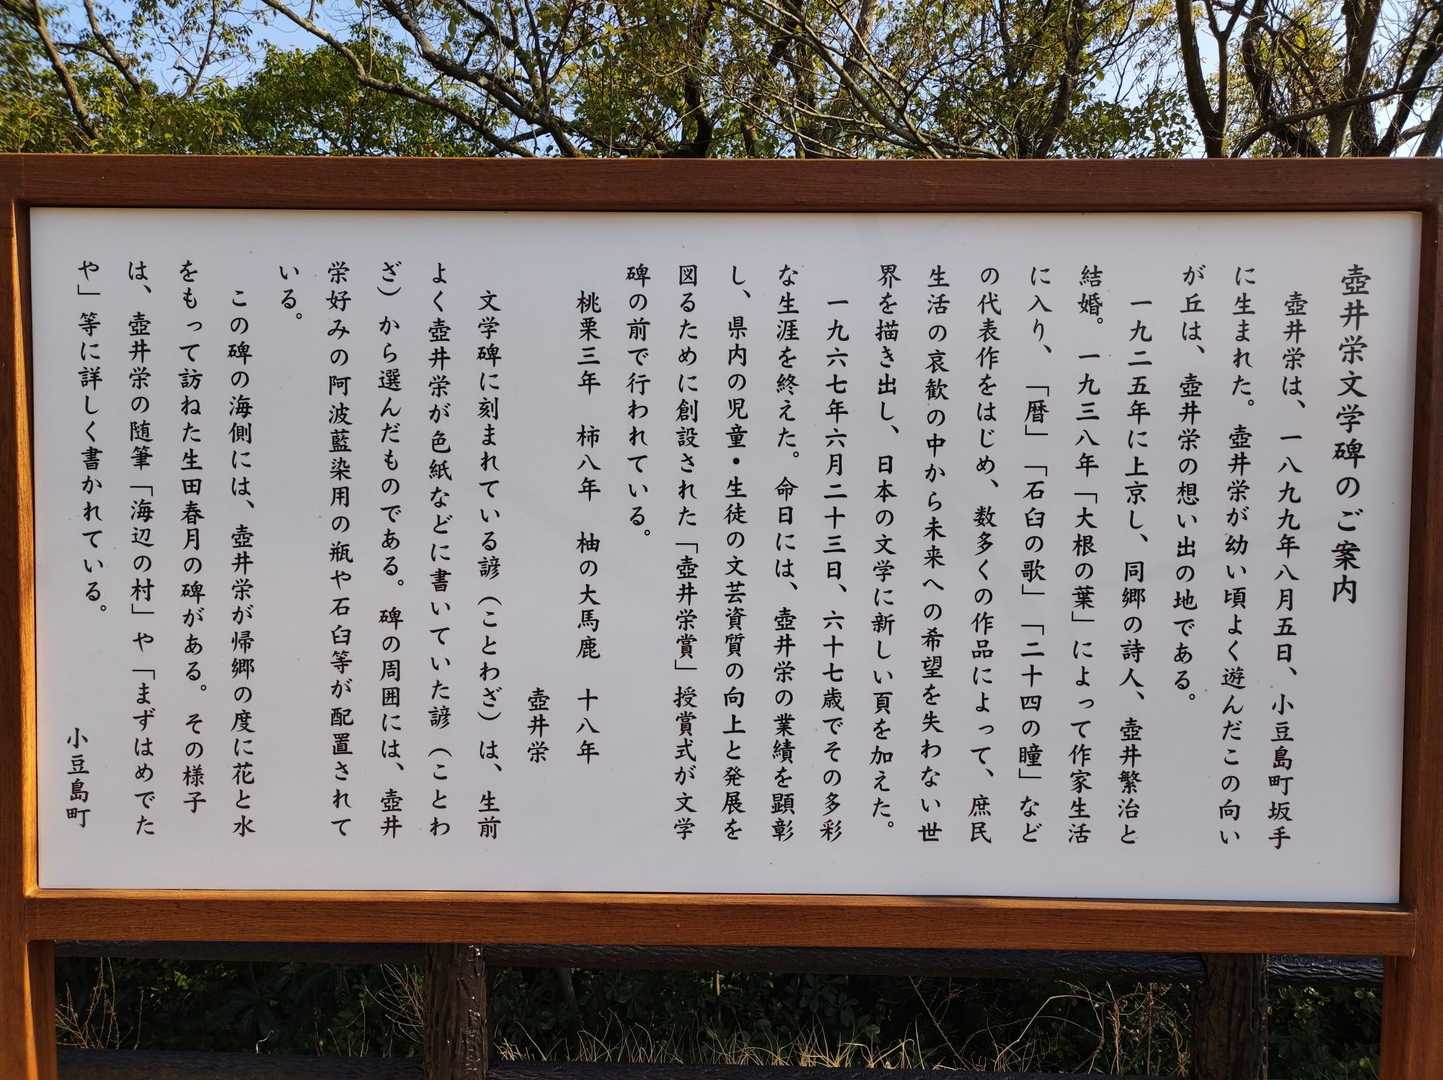 壺井栄文学碑のご案内
壺井栄は、一八九九年八月五日、小豆島町坂手
に生まれた。壺井栄が幼い頃よく遊んだこの向い
が丘は、壺井栄の想い出の地である。
一九二五年に上京し、同郷の詩人、壺井繁治と
結婚。一九三八年「大根の葉」によって作家生活
に入り、「暦」「石臼の歌」「二十四の瞳」など
の代表作をはじめ、数多くの作品によって、庶民
生活の哀歓の中から未来への希望を失わない世
界を描き出し、日本の文学に新しい頁を加えた。
一九六七年六月二十三日、六十七歳でその多彩
な生涯を終えた。命日には、壺井栄の業績を顕彰
し、県内の児童・生徒の文芸資質の向上と発展を
図るために創設された「壺井栄賞」授賞式が文学
碑の前で行われている。
桃栗三年　柿八年　柚の大馬鹿　十八年
壺井栄
文学碑に刻まれている諺（ことわざ）は、生前
よく壺井栄が色紙などに書いていた諺（ことわ
ざ）から選んだものである。碑の周囲には、壺井
栄好みの阿波藍染用の瓶や石臼等が配置されて
いる。
この碑の海側には、壺井栄が帰郷の度に花と水
をもって訪ねた生田春月の碑がある。その様子
は、壺井栄の随筆「海辺の村」や「まずはめでた
や」等に詳しく書かれている。
小豆島町